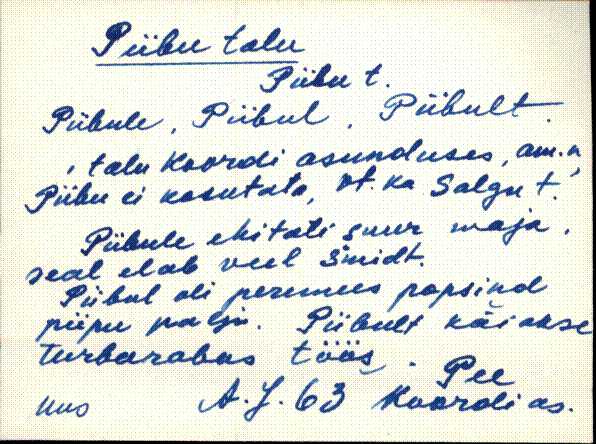 Piibu talu
Piibu t.
Piibule, Piibul, Piibult.
, talu Koordi asunduses, am. n,
Piibu ei kasutata, vt. ka Salgu t.
Piibule ehitati suur maja,
seal elab veel Šmidt.
Piibul oli peremees popsind
piipu palju. Piibult käiakse
Turbarabas tööś.
Pee
Uus A. J. 63 Koordi as.